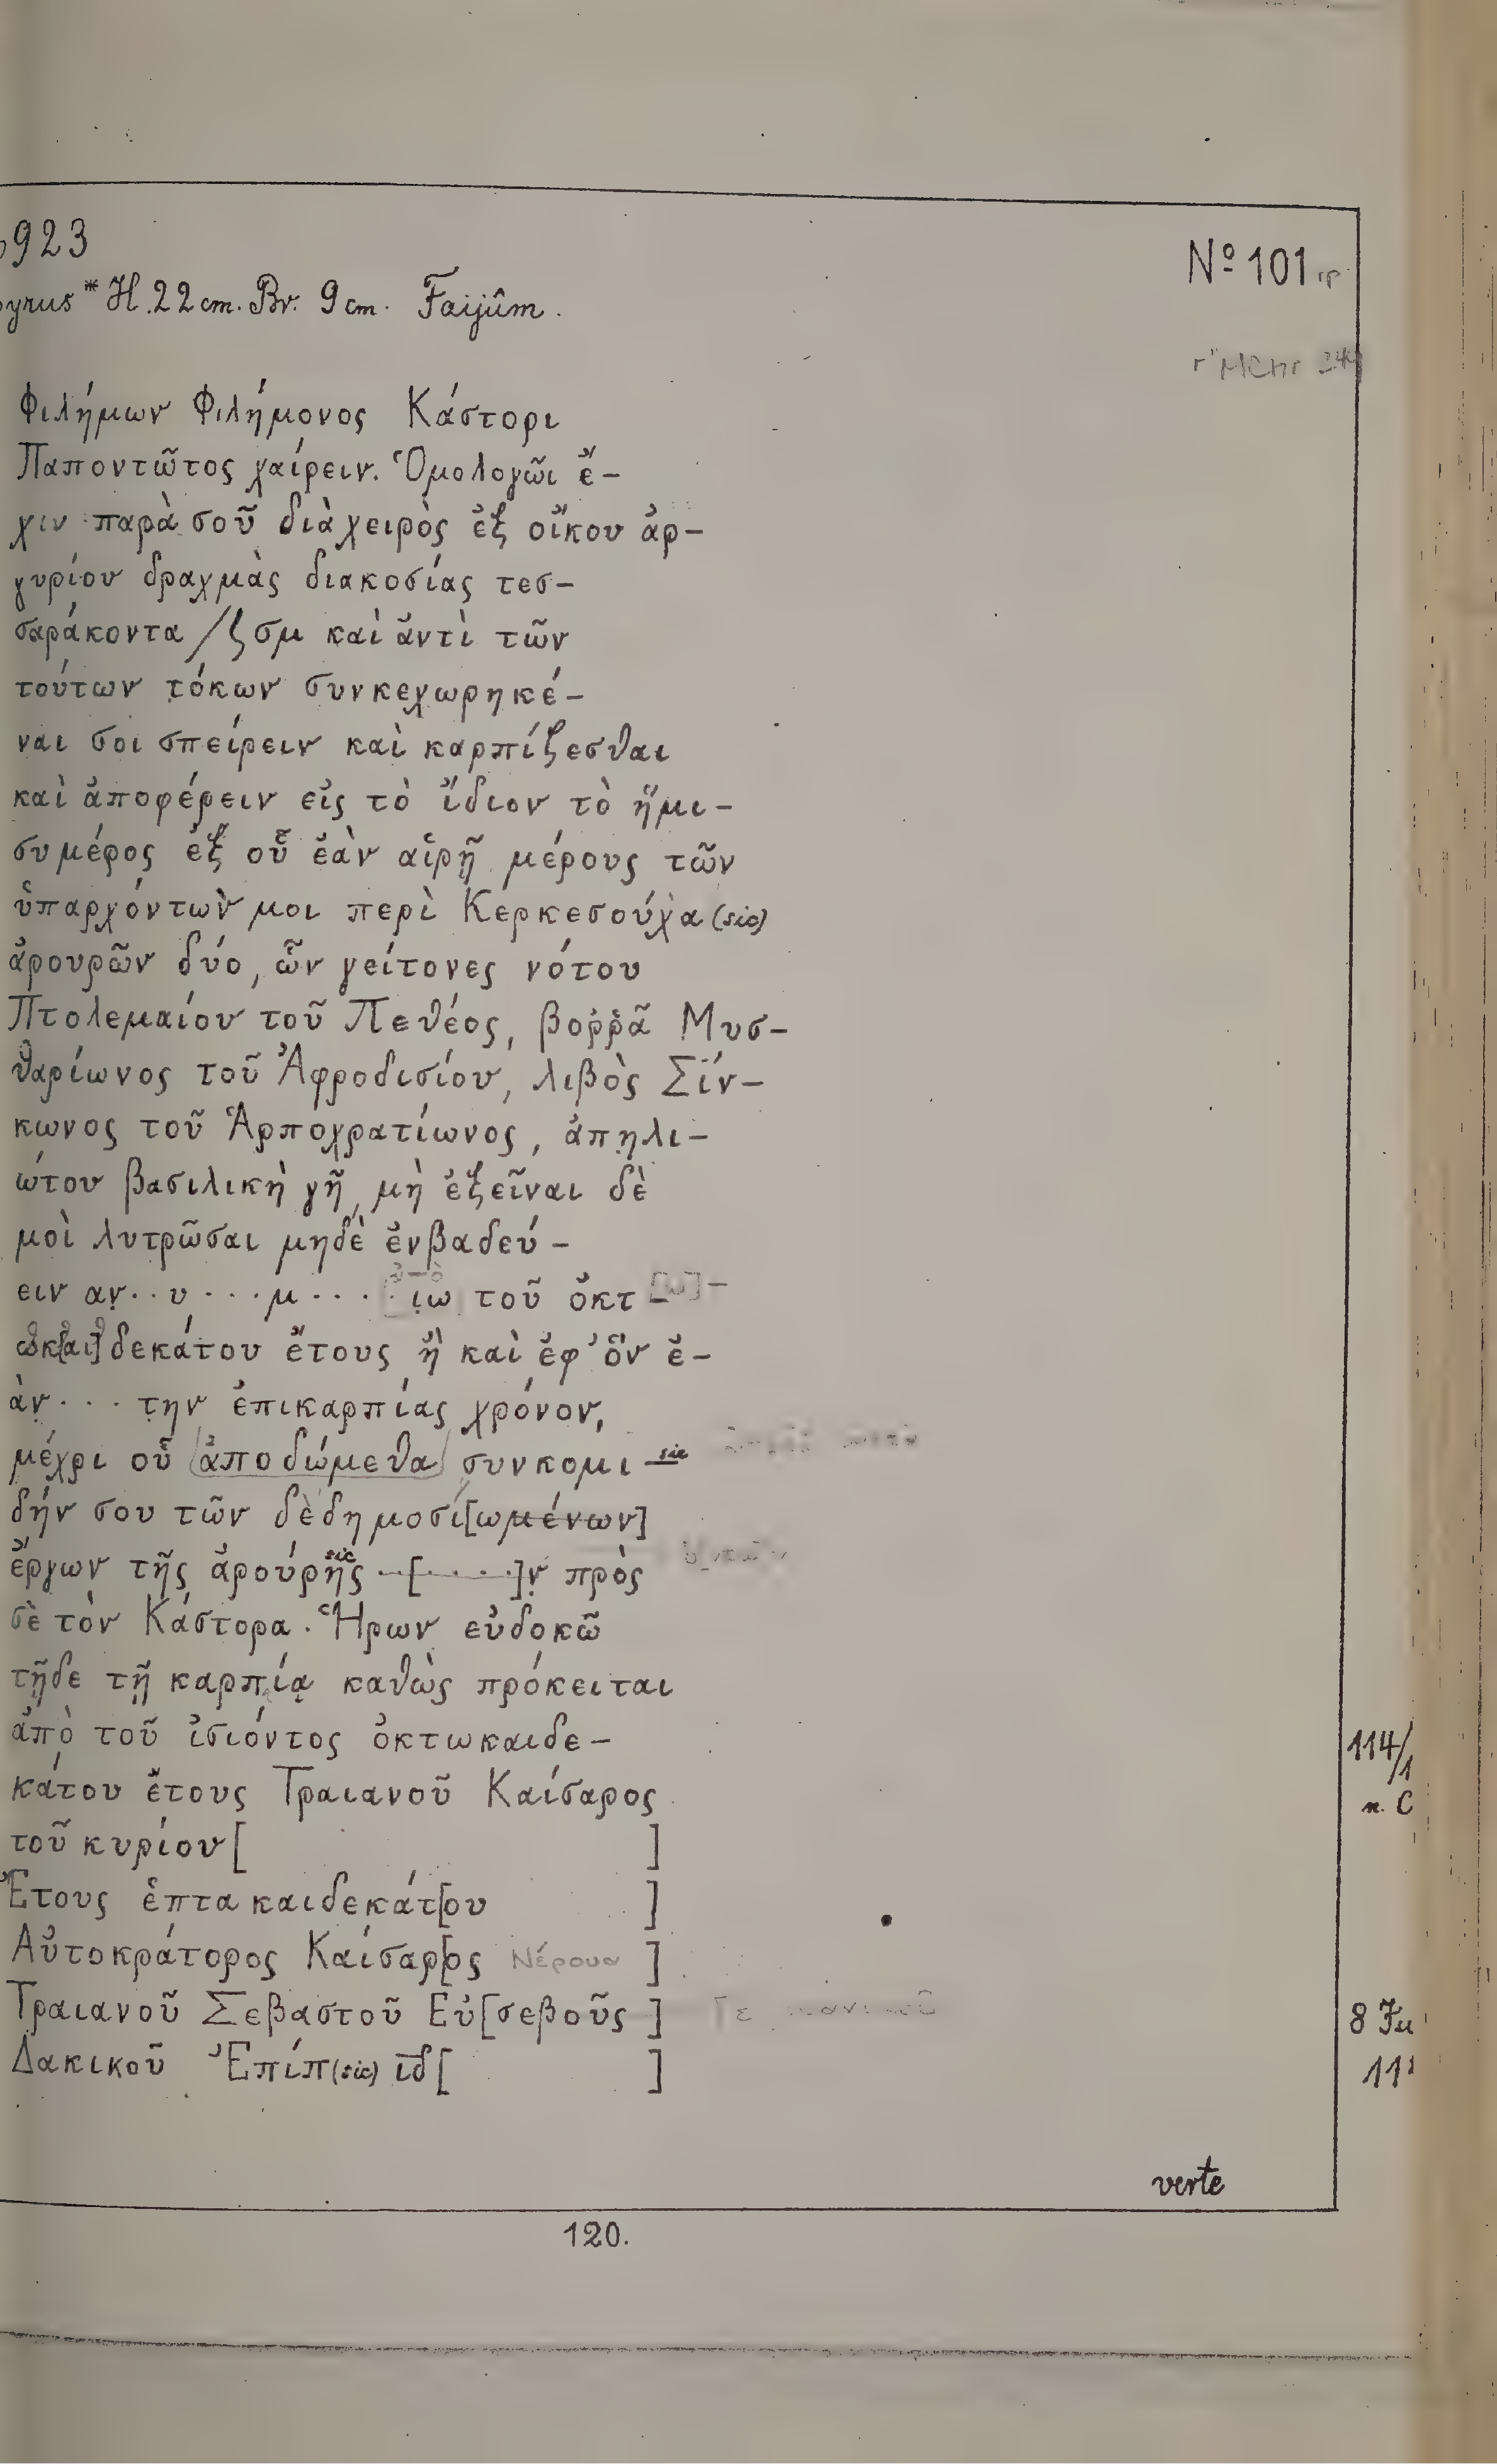 923
Nº 101
yrus * H. 22 cm. Br. 9 cm. Faijûm.
Φιλήμων Φιλήμονος Κάστορι
Παποντῶτος χαίρειν. Ὁμολογῶι ἔ-
χιν παρὰ σοῦ διὰ χειρὸς ἐξ οἴκου ἀρ-
γυρίου δραχμὰς διακοσίας τεσ-
σαράκοντα /ʃ σμ καὶ ἀντὶ τῶν
τούτων τόκων συνκεχωρηκέ-
ναι σοι σπείρειν καὶ καρπίζεσθαι
καὶ ἀποφέρειν εἰς τὸ ἴδιον τὸ ἥμι-
συ μέρος ἐξ οὗ ἐὰν αἱρῇ μέρους τῶν
ὑπαρχόντων μοι περὶ Κερκεσούχα (sic)
ἀρουρῶν δύο, ὧν γείτονες νότου
Πτολεμαίου τοῦ Πεθέος, βοῤῥᾶ Μυσ-
θαρίωνος τοῦ Ἀφροδισίου, λιβὸς Σίν-
κωνος τοῦ Ἁρποχρατίωνος, ἀπηλι-
ώτου βασιλικὴ γῆ, μὴ ἐξεῖναι δὲ
μοὶ λυτρῶσαι μηδὲ ἐνβαδεύ-
ειν αν··υ···μ···· ιω τοῦ ὀκτ [ω]-
κ[αι]δεκάτου ἔτους ἢ καὶ ἐφ' ὃν ἐ-
ὰν··· την ἐπικαρπίας χρόνον,
μέχρι οὗ ἀποδώμεθα συνκομι- sic
δήν σου τῶν δὲ δημοσί[ωμένων]
ἔργων τῆς ἀρούρης sic ··[····]ν πρὸς
σὲ τὸν Κάστορα. Ἥρων εὐδοκῶ
τῇδε τῇ καρπίᾳ καθὼς πρόκειται
ἀπὸ τοῦ ἰσιόντος ὀκτωκαιδε-
κάτου ἔτους Τραιανοῦ Καίσαρος
114/1
n. C
τοῦ κυρίου [ ]
Ἔτους ἑπτακαιδεκάτ[ου ]
Αὐτοκράτορος Καίσαρ[ος Νέρουα ]
Τραιανοῦ Σεβαστοῦ Εὐ[σεβοῦς ]
8 Ju
Δακικοῦ Ἐπίπ (sic) ιδ [ ]
11
verte
120.